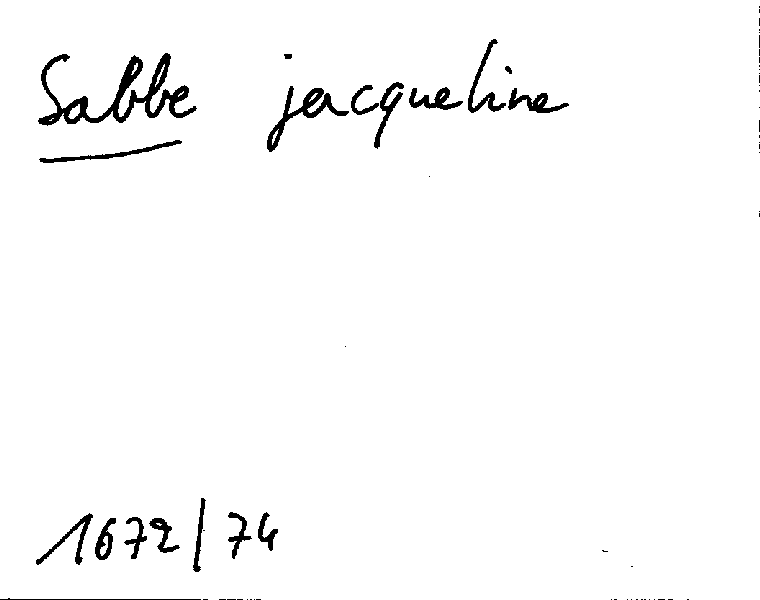 Sabbe jacqueline
1672/74